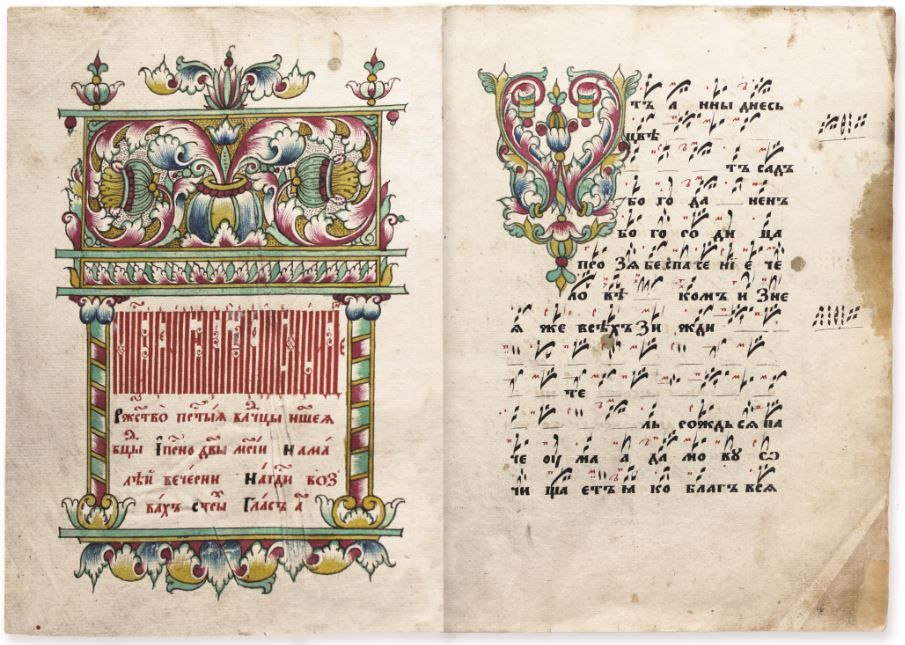 Ржⷭ҇тво прⷭ҇тыѧ влⷣчцы нш҃еѧ
бцⷣы і҆ прⷭ҇но дв҃ы мр҃іи на ма
лѣй вечерни На гдⷭ҇и воз
вахъ стры Гласъ а҃
тъ а нны днесь
цвѣ
тъ садъ
бо го да ненъ
бо го ро ди ца
про зѧ бе спа се ні е че
ло вѣ комъ и зне
ѧ же всѣхъ зи жди
те
ль рождь сѧ па
че оу ма а да мо ву ѡ
чи ща етъ ꙗ ко благъ всѧ